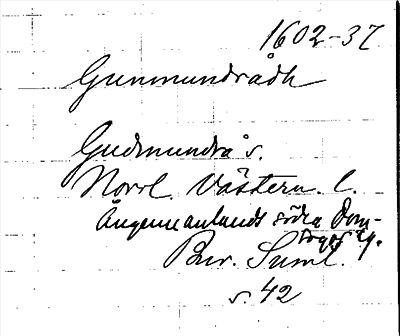 1602-37
Gunmundrådh
Gudmundrå s.
Norrl. Västern. l.
Ångermanlands södra Dom-
sagas lg.
Bur. Suml.
s. 42